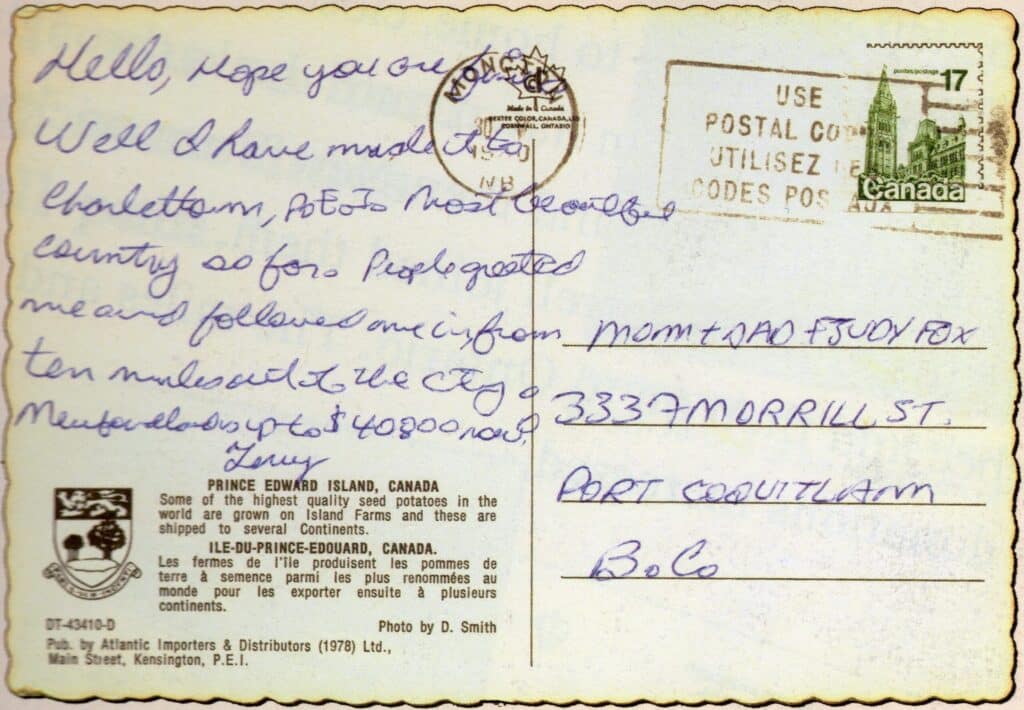 Hello, Hope you are
Well I have made it to
Charlottown, P.E.I. Most beautiful
country so far. People greeted
me and followed me in, from
ten miles out to the city.
Newfoundland is up to $40800 now!
Terry
PRINCE EDWARD ISLAND, CANADA
Some of the highest quality seed potatoes in the
world are grown on Island Farms and these are
shipped to several Continents.
ILE-DU-PRINCE-EDOUARD, CANADA.
Les fermes de l'île produisent les pommes de
terre à semence parmi les plus renommées au
monde pour les exporter ensuite à plusieurs
continents.
DT-43410-D
Photo by D. Smith
Pub. by Atlantic Importers & Distributors (1978) Ltd.,
Main Street, Kensington, P.E.I.
MONCTON
Made in Canada
DEXTER COLOR, CANADA, LTD
CORNWALL, ONTARIO
NB
USE
POSTAL CO
UTILISEZ
CODES POSTAUX
postes/postage
17
Canada
MOM + DAD + JUDY FOX
3337 MORRILL ST.
PORT COQUITLAM
B.C.